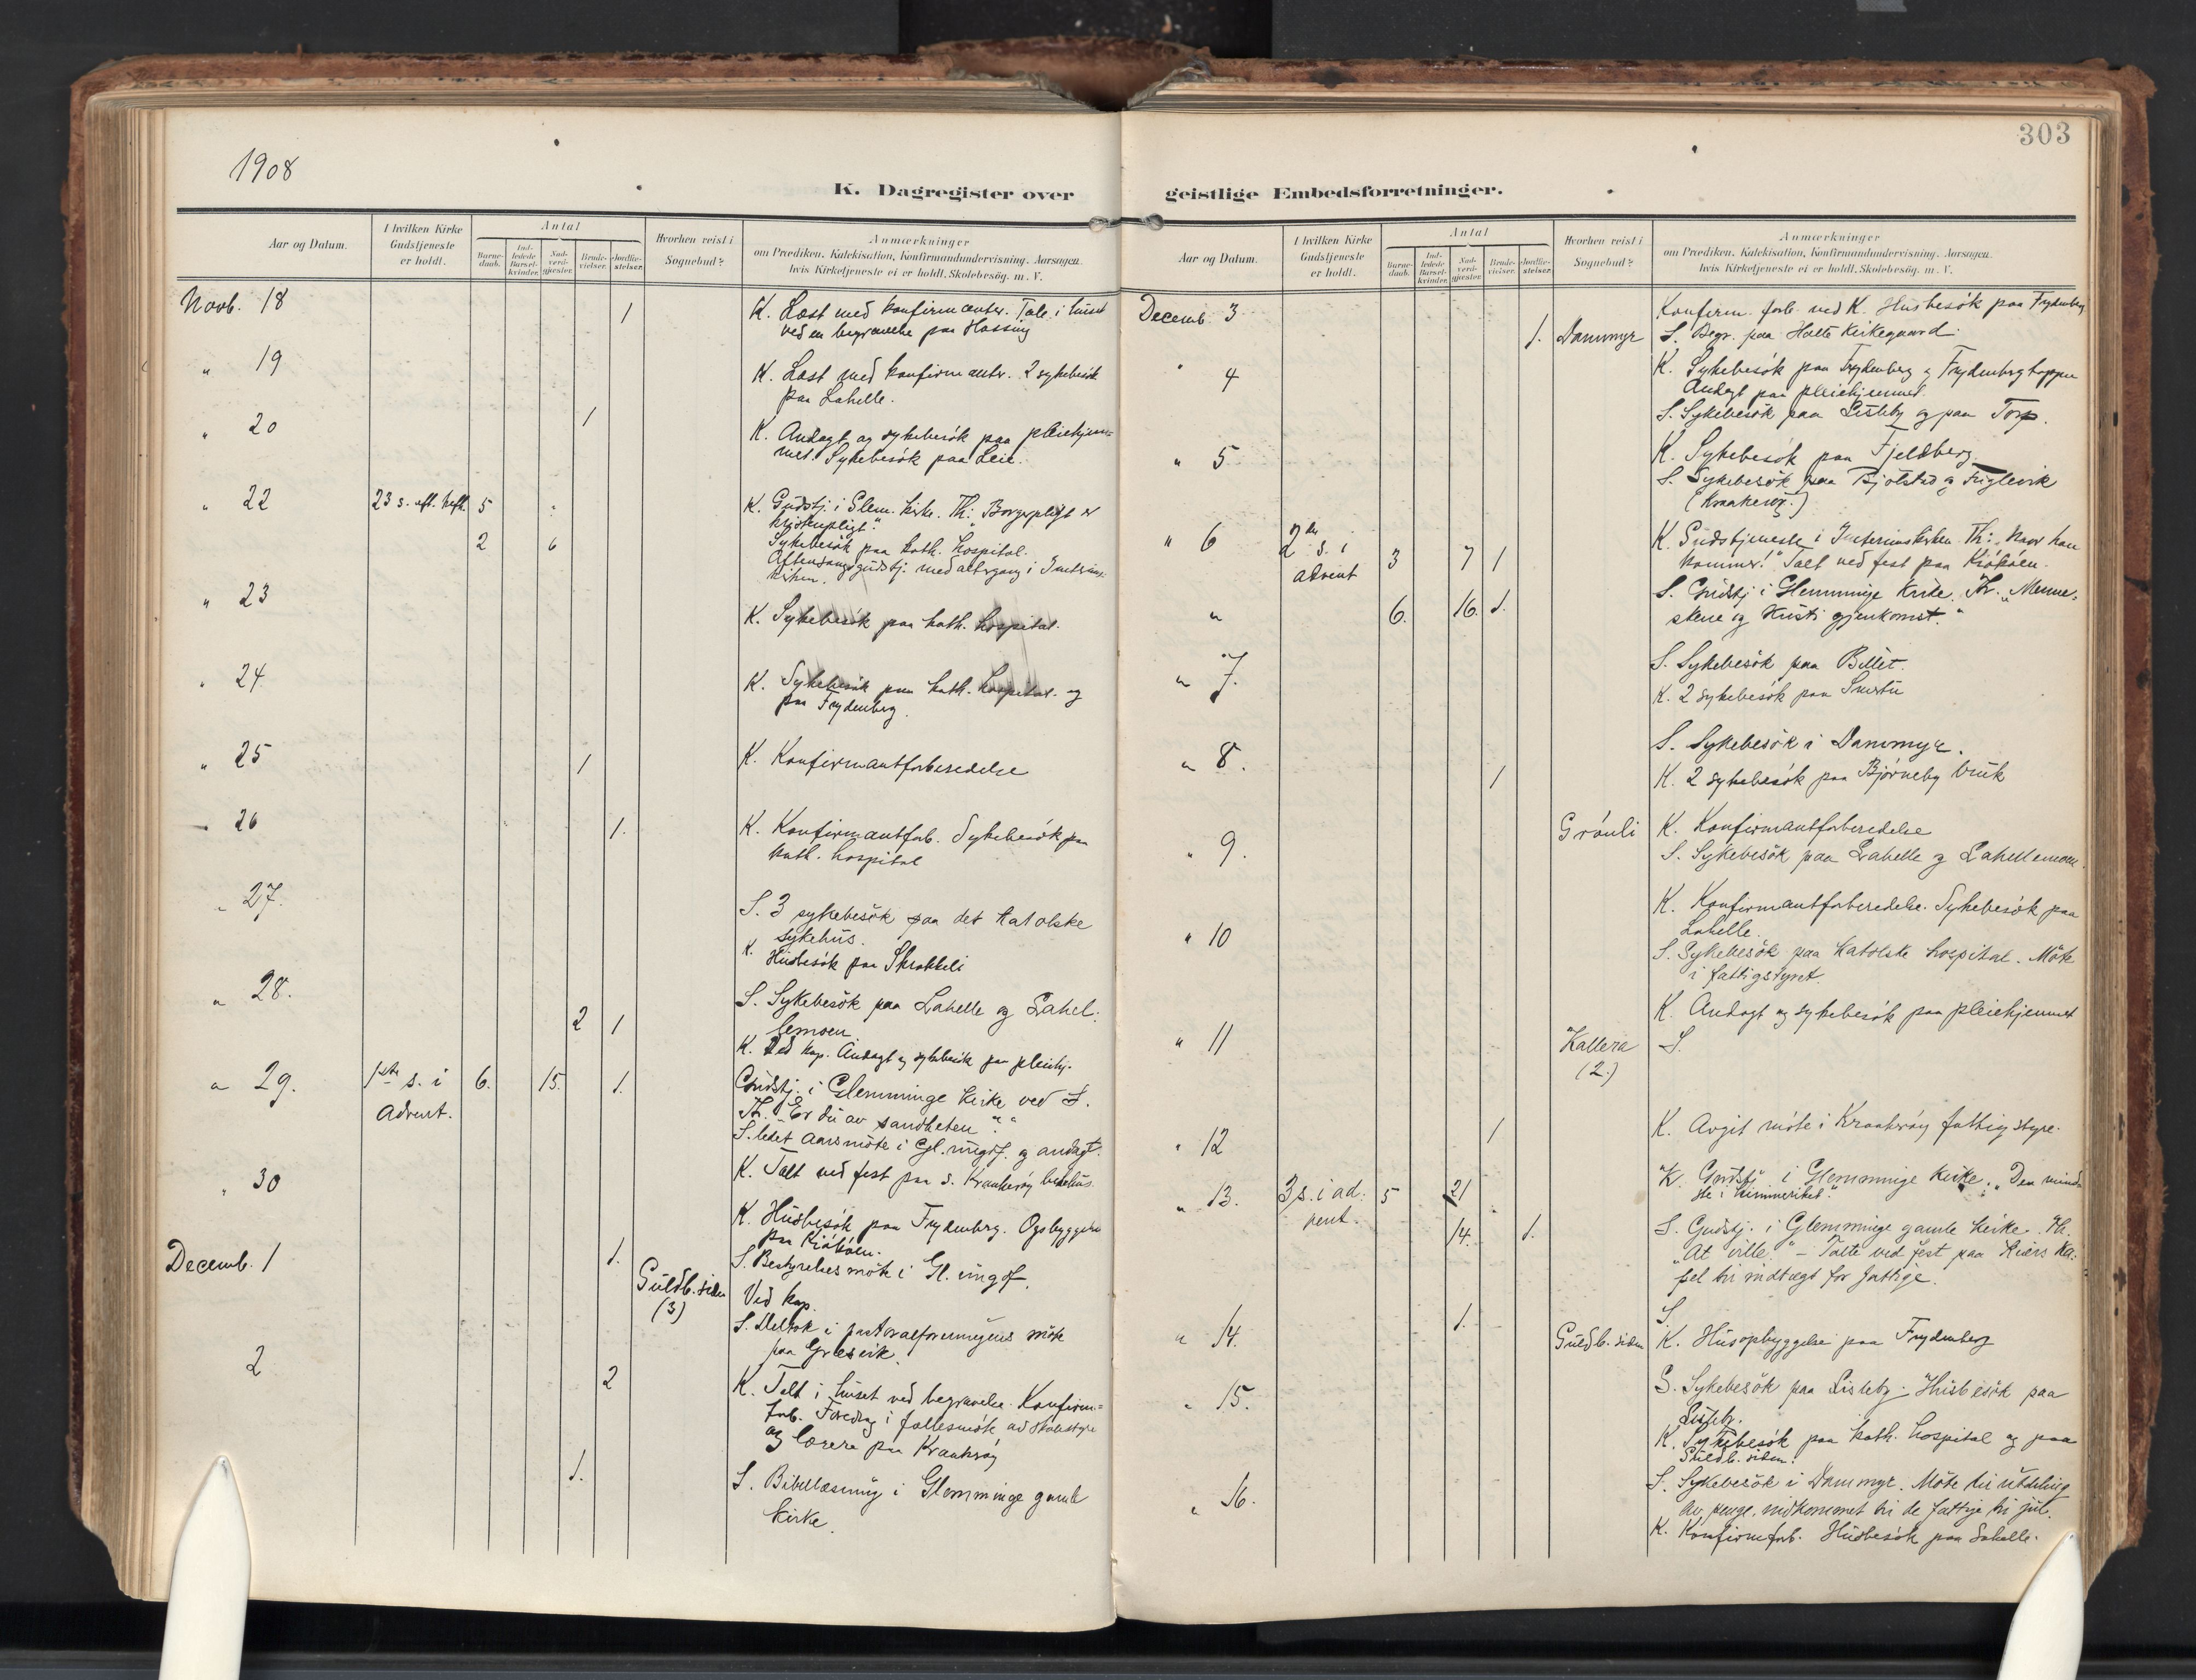 303
1908
K. Dagregister over
geistlige Embedsforretninger.
Aar og Datum.
I hvilken Kirke
Gudstjeneste
er holdt.
Antal
Barne-
daab.
Ind-
ledede
Barsel-
kvinder.
Nad-
verd-
gjester.
Brude-
vielser.
Jordfæ-
stelser.
Hvorhen reist i
Sognebud?
Anmærkninger
om Prædiken, Katekisation, Konfirmandundervisning. Aarsagen
hvis Kirketjeneste ei er holdt, Skolebesög. m. V.
Novb. 18 1 K. Læst med konfirmanter. Tale i huset
ved en begravelse paa Hassing
" 19 K. Læst med konfirmanter. 2 sykebesök
paa Lahelle.
" 20 1 K. Andagt og sykebesök paa pleiehjem=
met. Sykebesök paa Leie.
" 22 23 s. eft. 5 K. Gudstj. i Glem. kirke. Th: "Borgerpligt er
2 6 Sykebesök paa kath. hospital.
Aftensangsgudstj. med altergang i Interims-
kirken.
" 23 K. Sykebesök paa kath. hospital.
" 24 K. Sykebesök paa kath. hospital og
paa Frydenberg.
" 25 1 K. Konfirmantforberedelse
" 26 1. K. Konfirmantforb. Sykebesök paa
kath. hospital
" 27. S. 3 sykebesök paa det katolske
sykehus.
K. Husbesök paa Skrakkeli
" 28. S. Sykebesök paa Lahelle og Lahel-
2 1 lemoen
K. Ved kap. Andagt og sykebesök paa pleiehj.
" 29. 1ste s. i 6. 15. 1. Gudstj. i Glemminge kirke ved S.
Advent. Th. "Er du av sandheten".
S. ledet aarsmöte i Gl. ungdf. og andagt.
K. Talt ved fest paa s. Kraakeröy bedehus.
" 30 K. Husbesök paa Frydenberg.
paa Kiököen.
Decemb. 1 1. S. Bestyrelsesmöte i Gl. ungdf.
Guldb. siden Ved kap.
(3) S. Deltok i pastoralforeningens möte
paa Gresvik.
2 2 K. Talt i huset ved begravelse. Konfirm=
forb. Foredrag i fællesmöte av skolestyre
og lærere paa Kraakeröy
1. S. Bibellæsning i Glemminge gamle
kirke.
Aar og Datum.
I hvilken Kirke
Gudstjeneste
er holdt.
Antal
Barne-
daab.
Ind-
ledede
Barsel-
kvinder.
Nad-
verd-
gjester.
Brude-
vielser.
Jordfæ-
stelser.
Hvorhen reist i
Sognebud?
Anmærkninger
om Prædiken, Katekisation, Konfirmandundervisning. Aarsagen
hvis Kirketjeneste ei er holdt, Skolebesög. m. V.
Decemb. 3 Konfirm. forb. ved K. Husbesök paa Frydenberg
1. Dammyr S. Begr. paa Holte Kirkegaard.
" 4 K. Sykebesök paa Frydenberg og Frydenbergtoppen
Andagt paa pleiehjemmet.
S. Sykebesök paa Lisleby og paa Torp.
" 5 K. Sykebesök paa Fjeldberg.
S. Sykebesök paa Bjölstad og Fuglevik
(Kraakeröy.)
" 6 2 s. i 3 7 1 K. Gudstjeneste i Interimskirken Th: "Naar han
advent kommer!" Talt ved fest paa Kiököen.
" 6. 16. 1. S. Gudstj. i Glemminge Kirke. Th. "Menne=
skene og Kristi gjenkomst."
" 7. S. Sykebesök paa Billet.
K. 2 sykebesök paa Smertu
" 8. S. Sykebesök i Dammyr.
1 K. 2 sykebesök paa Bjørneby bruk
" 9. Grönli K. Konfirmantforberedelse
S. Sykebesök paa Lahelle og Lahellemoen.
" 10 K. Konfirmantforberedelse. Sykebesök paa
Lahelle.
S. Sykebesök paa Katolske hospital. Möte
i fattigstyret.
K. Andagt og sykebesök paa pleiehjemmet
" 11 Kallera S.
(2.)
" 12 1 K. Avgit möte i Kraakeröy fattigstyre.
" 13. 3 s. i ad- 5 21 K. Gudstj. i Glemminge kirke. "Den mind-
vent. ste i himmeriket".
14. 1. S. Gudstj. i Glemminge gamle kirke. Th.
"At ville." – Talte ved fest paa Kiærs Ka-
pel til indtægt for fattige.
" 14. 1. S.
Guldb. siden K. Husopbyggelse paa Frydenberg
" 15. S. Sykebesök paa Lisleby. Husbesök paa
Lisleby.
K. Sykebesök paa kath. hospital og paa
Guldb. siden.
" 16. S. Sykebesök i Dammyr. Möte til utdeling
av penge, indkommet til de fattige til jul.
K. Konfirmforb. Husbesök paa Lahelle.